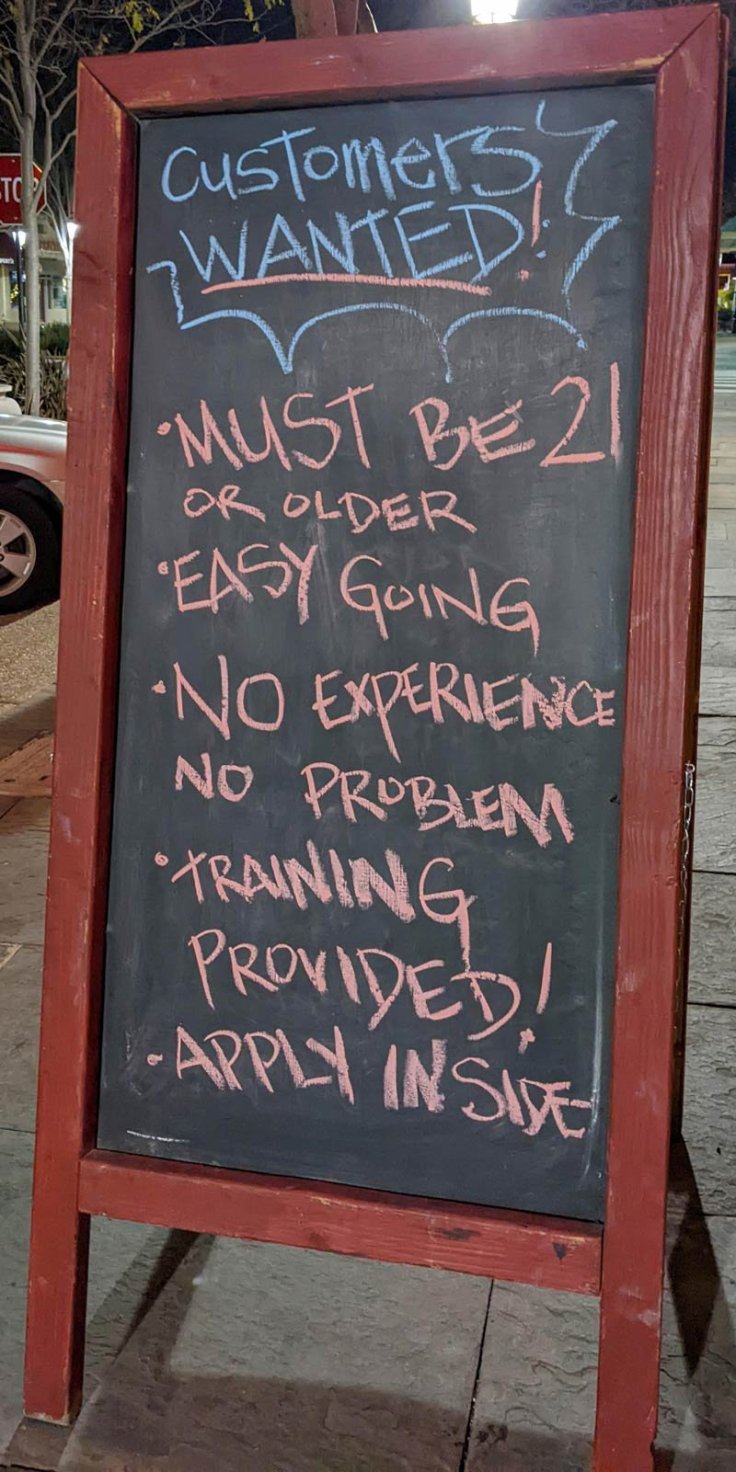 STO
Customers
WANTED!
• MUST BE 21
OR OLDER
• EASY GOING
• NO EXPERIENCE
NO PROBLEM
• TRAINING
PROVIDED!
• APPLY INSIDE